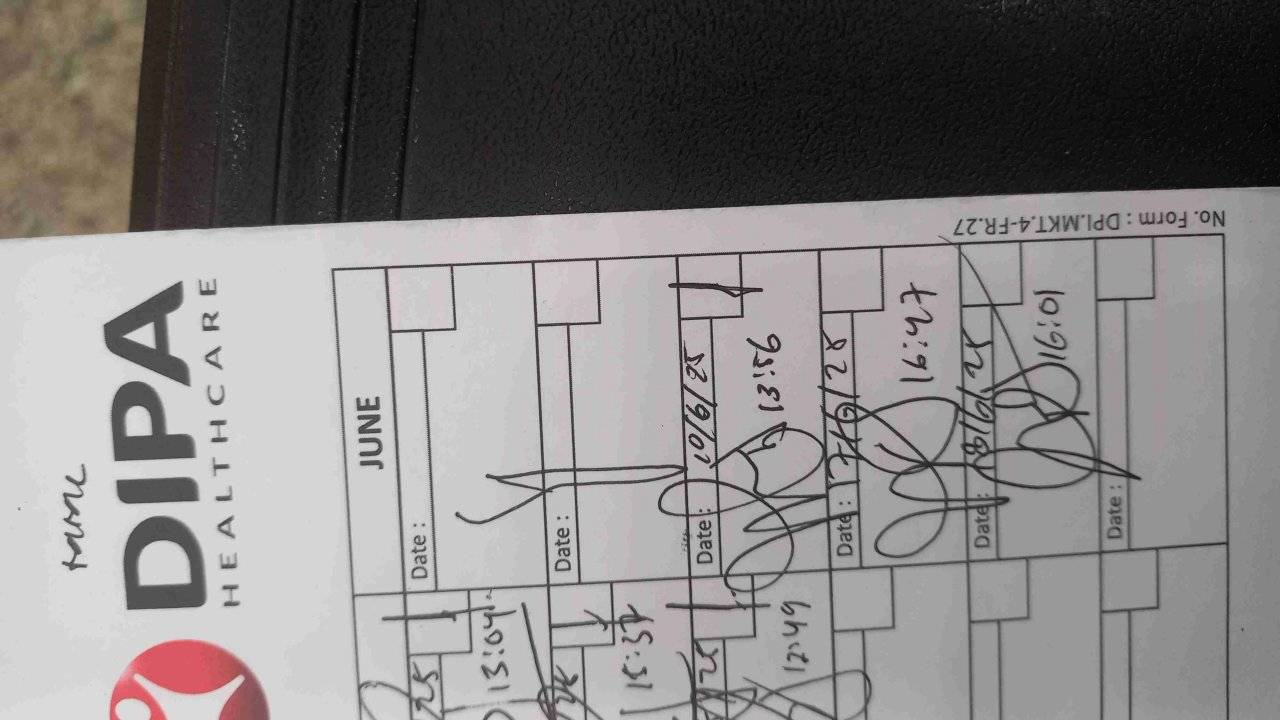 DIPA
HEALTHCARE
JUNE
Date :
Date :
Date : 10/6/25
13:56
Date : 17/6/25
16:47
Date : 18/6/25
16:01
Date :
25
13:04
25
15:37
25
12:49
No. Form : DPI.MKT.4-FR.27